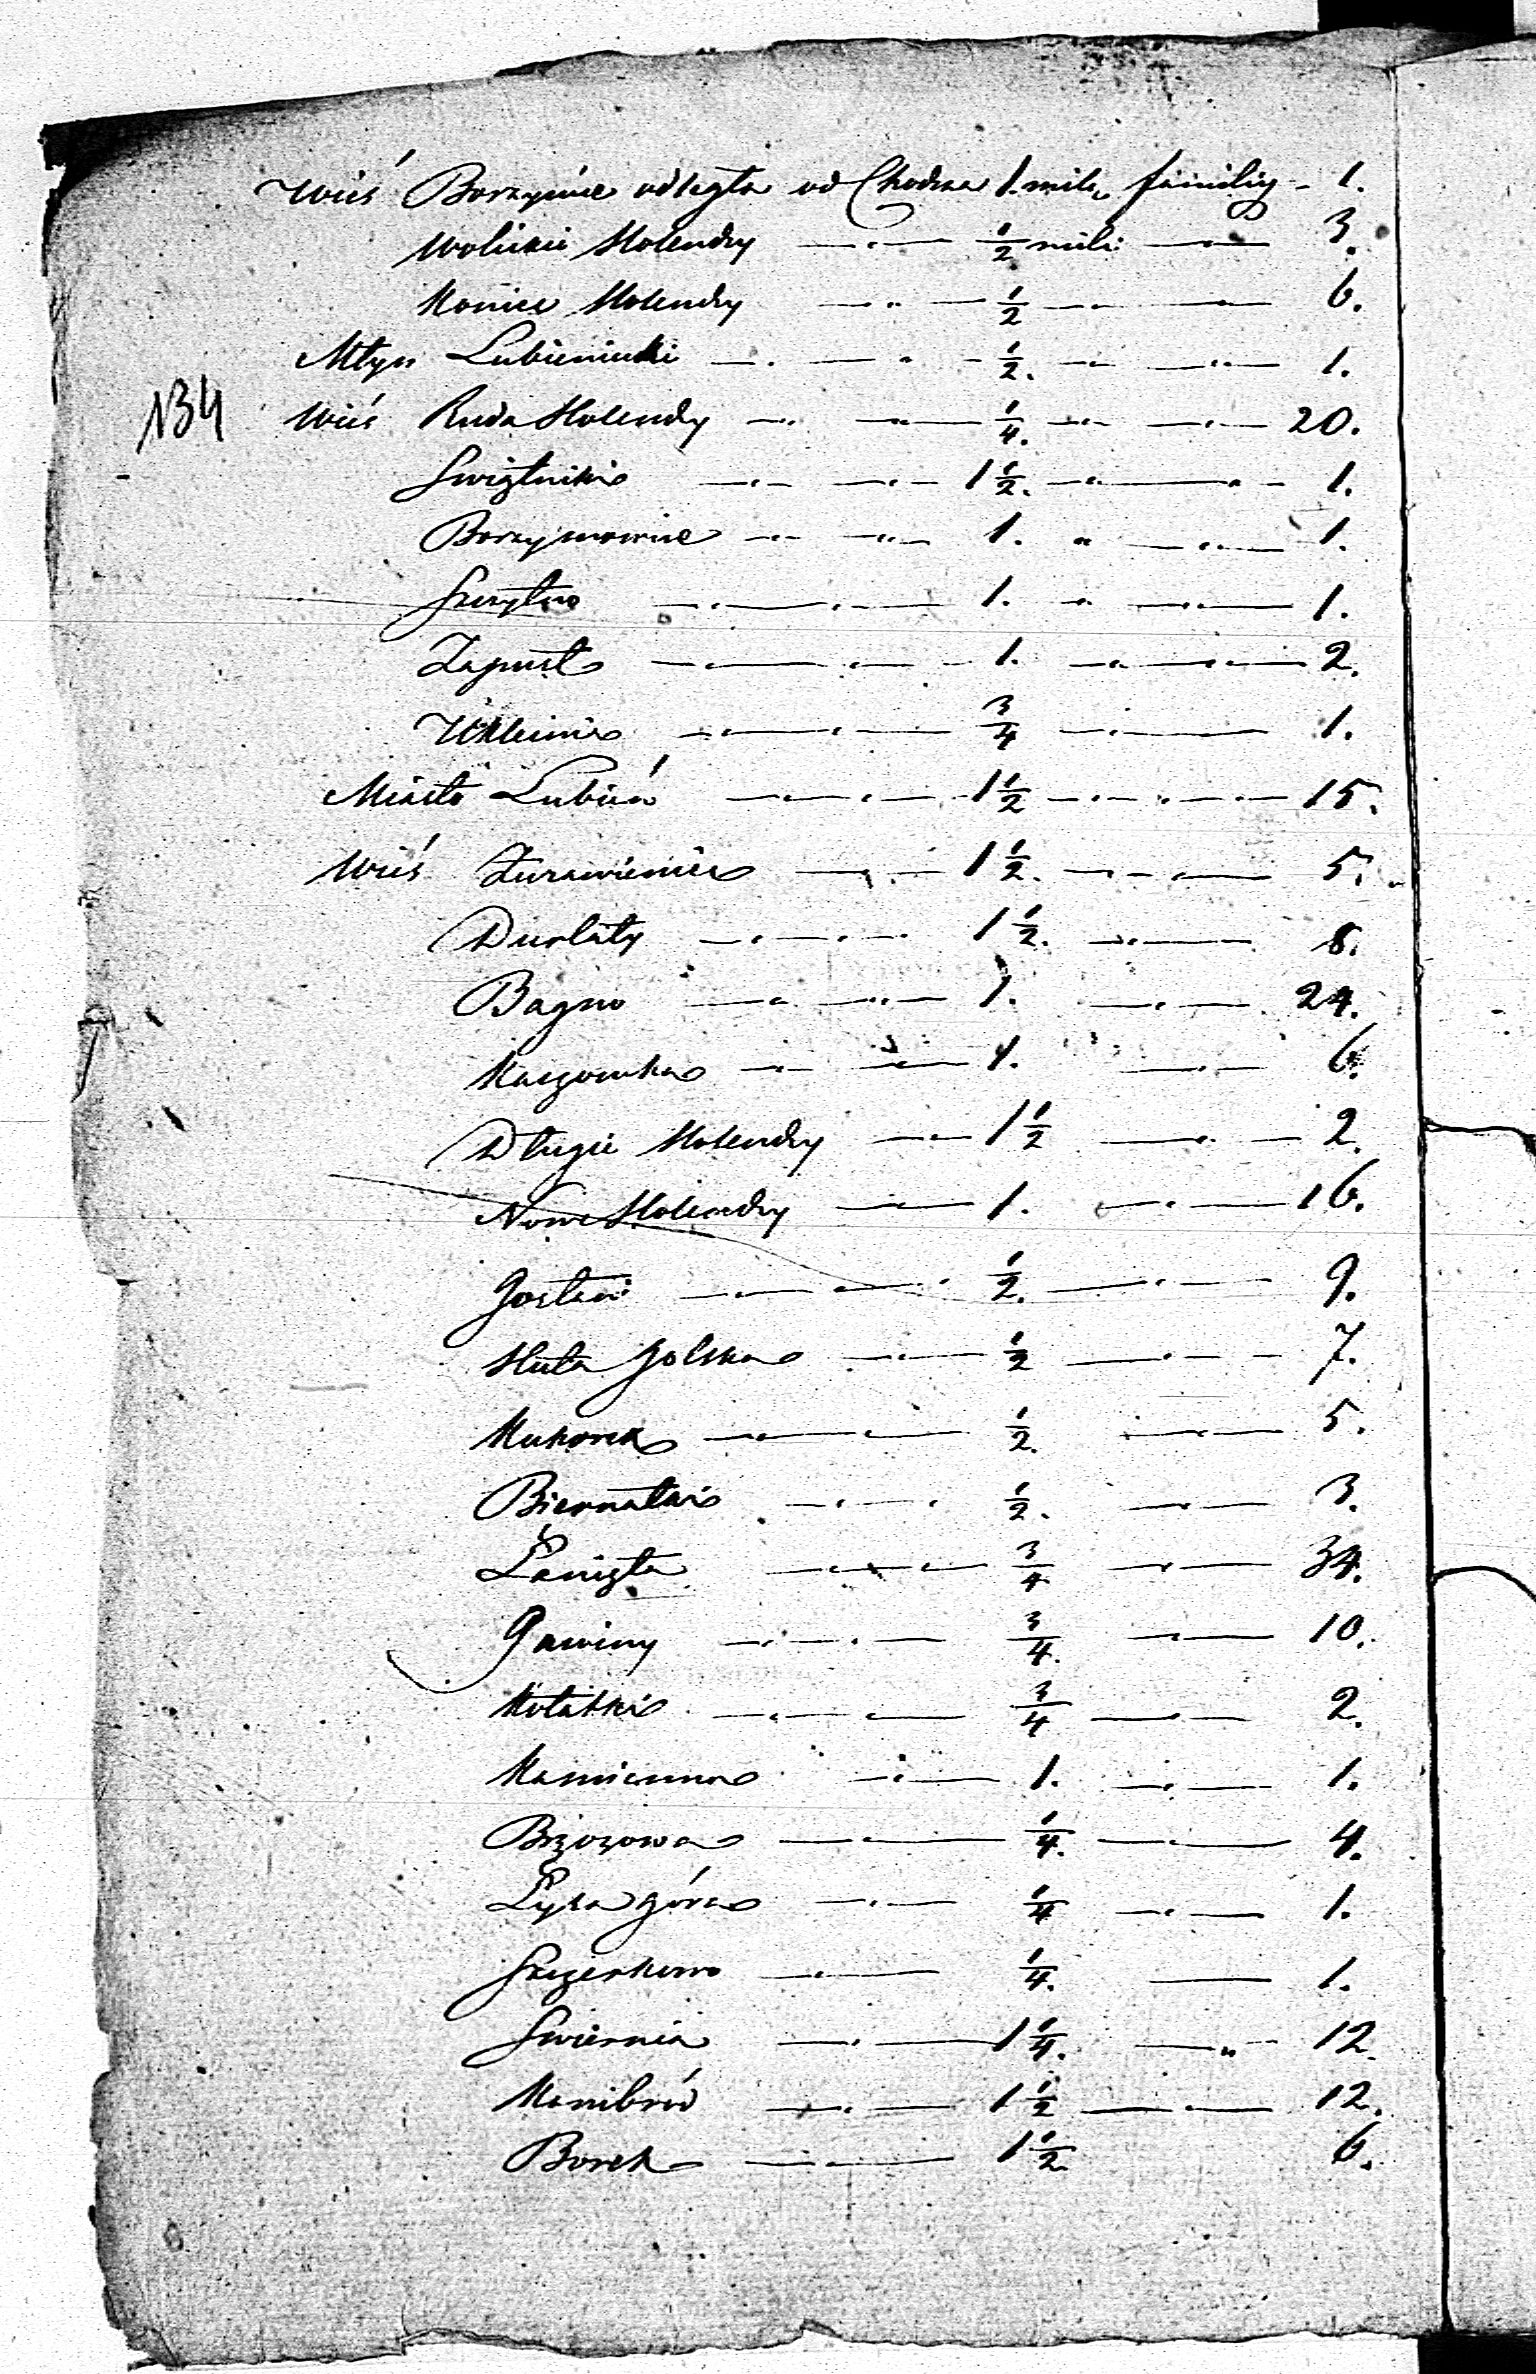 Wieś Borzymie odległa od Chodcza 1. milę familiy - 1.
Wolickie Holendry — 1/2 mili — 3.
Koniec Holendry — 1/2 — 6.
Młyn Lubieniecki — 1/2. — 1.
134 Wieś Ruda Holendry — 1/4. — 20.
Swiętniki — 1 1/2. — 1.
Borzymowice — 1. — 1.
Szczytno — 1. — 1.
Zapust — 1. — 2.
Ukleinica — 3/4 — 1.
Miasto Lubień — 1 1/2 — 15.
Wieś Zurawieniec — 1 1/2. — 5.
Durlaty — 1 1/2. — 8.
Bagno — 1. — 24.
Kaczonka — 1. — 6.
Długie Holendry — 1 1/2 — 2.
Nowe Holendry — 1. — 16.
Gosteń — 1/2. — 9.
Huta Golska — 1/2 — 7.
Mukorek — 1/2. — 5.
Biernatki — 1/2. — 3.
Łanięta — 3/4 — 34.
Gawiny — 3/4. — 10.
Kołatki — 3/4 — 2.
Kamienna — 1. — 1.
Brzozowa — 1/4. — 4.
Łysa góra — 1/4 — 1.
Szczerkowo — 1/4. — 1.
Swiernia — 1 1/4. — 12.
Kanibród — 1 1/2 — 12.
Borek — 1 1/2 6.